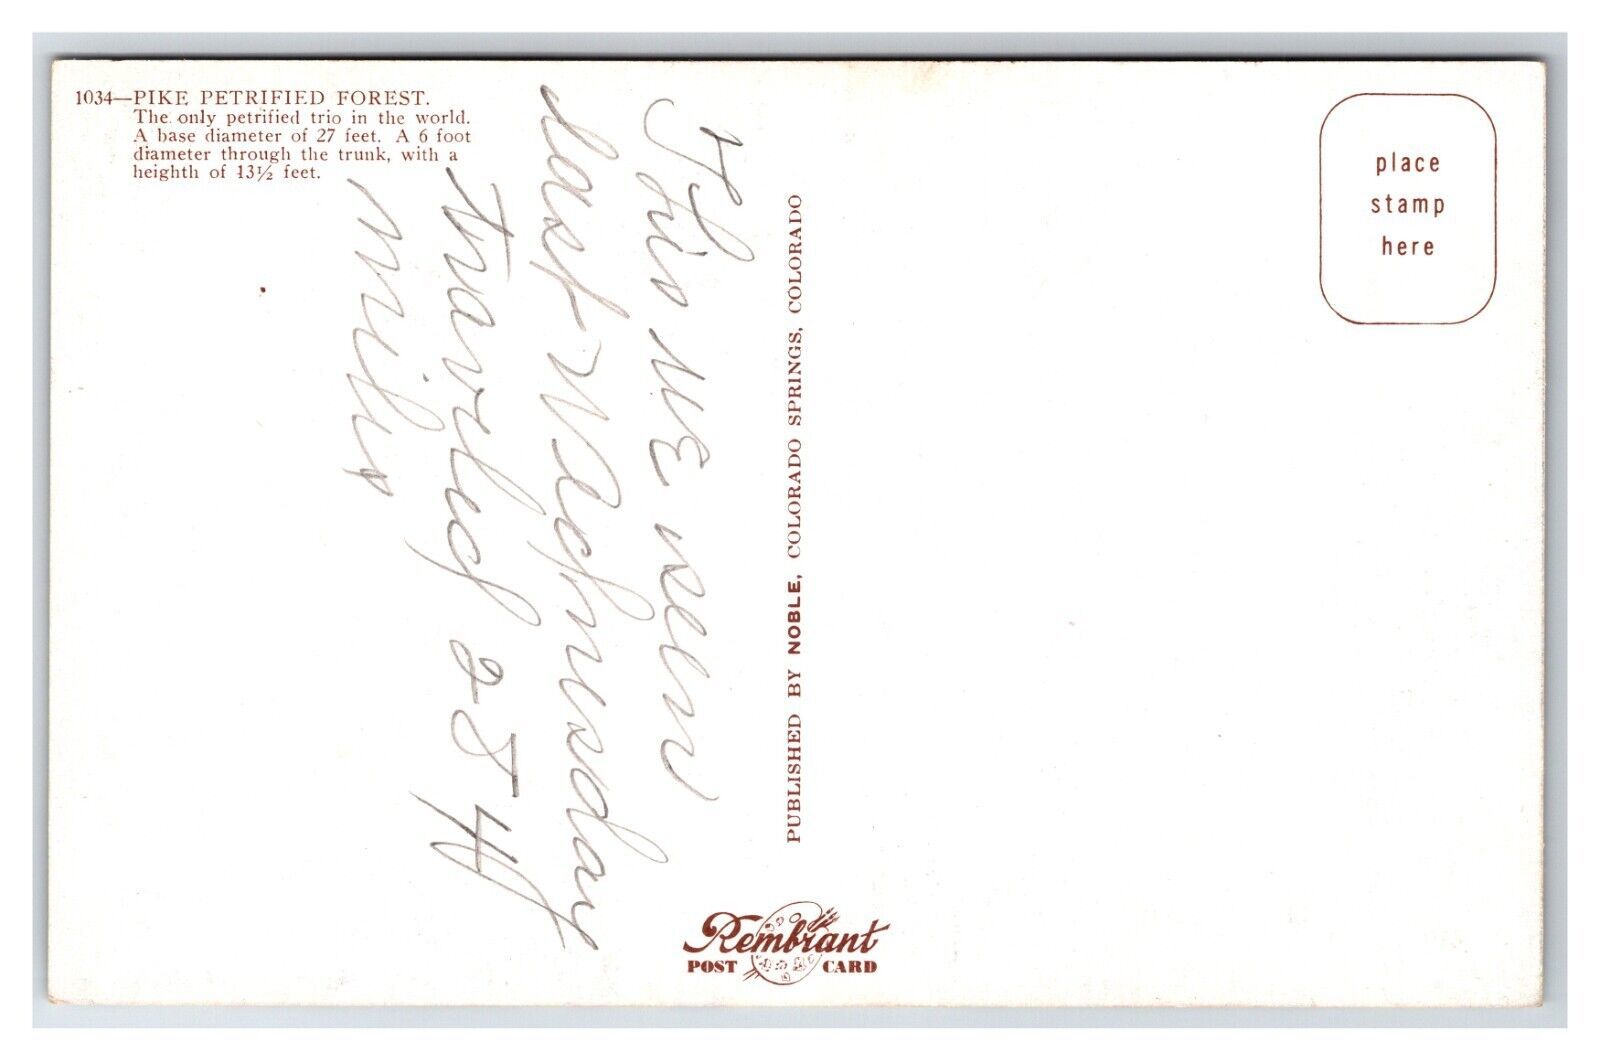 1034—PIKE PETRIFIED FOREST.
The only petrified trio in the world.
A base diameter of 27 feet. A 6 foot
diameter through the trunk, with a
heighth of 13½ feet.
This WE seen
last Wednesday
traveled 254
miles
PUBLISHED BY NOBLE, COLORADO SPRINGS, COLORADO
place
stamp
here
Rembrant
POST CARD